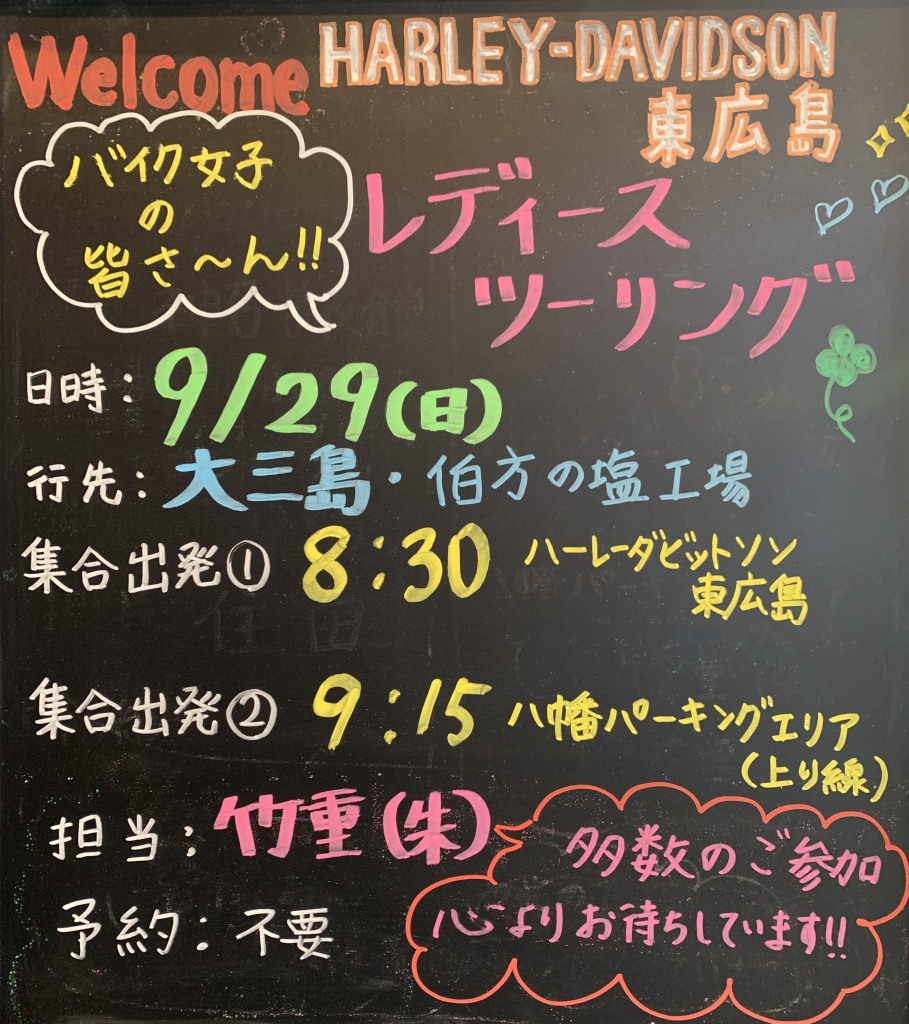 Welcome HARLEY-DAVIDSON
東広島
バイク女子
の
皆さ～ん!!
レディース
ツーリング
日時：9/29(日)
行先：大三島・伯方の塩工場
集合出発① 8:30 ハーレーダビットソン
東広島
集合出発② 9:15 八幡パーキングエリア
(上り線)
担当：竹重(朱)
予約：不要
多数のご参加
心よりお待ちしています!!